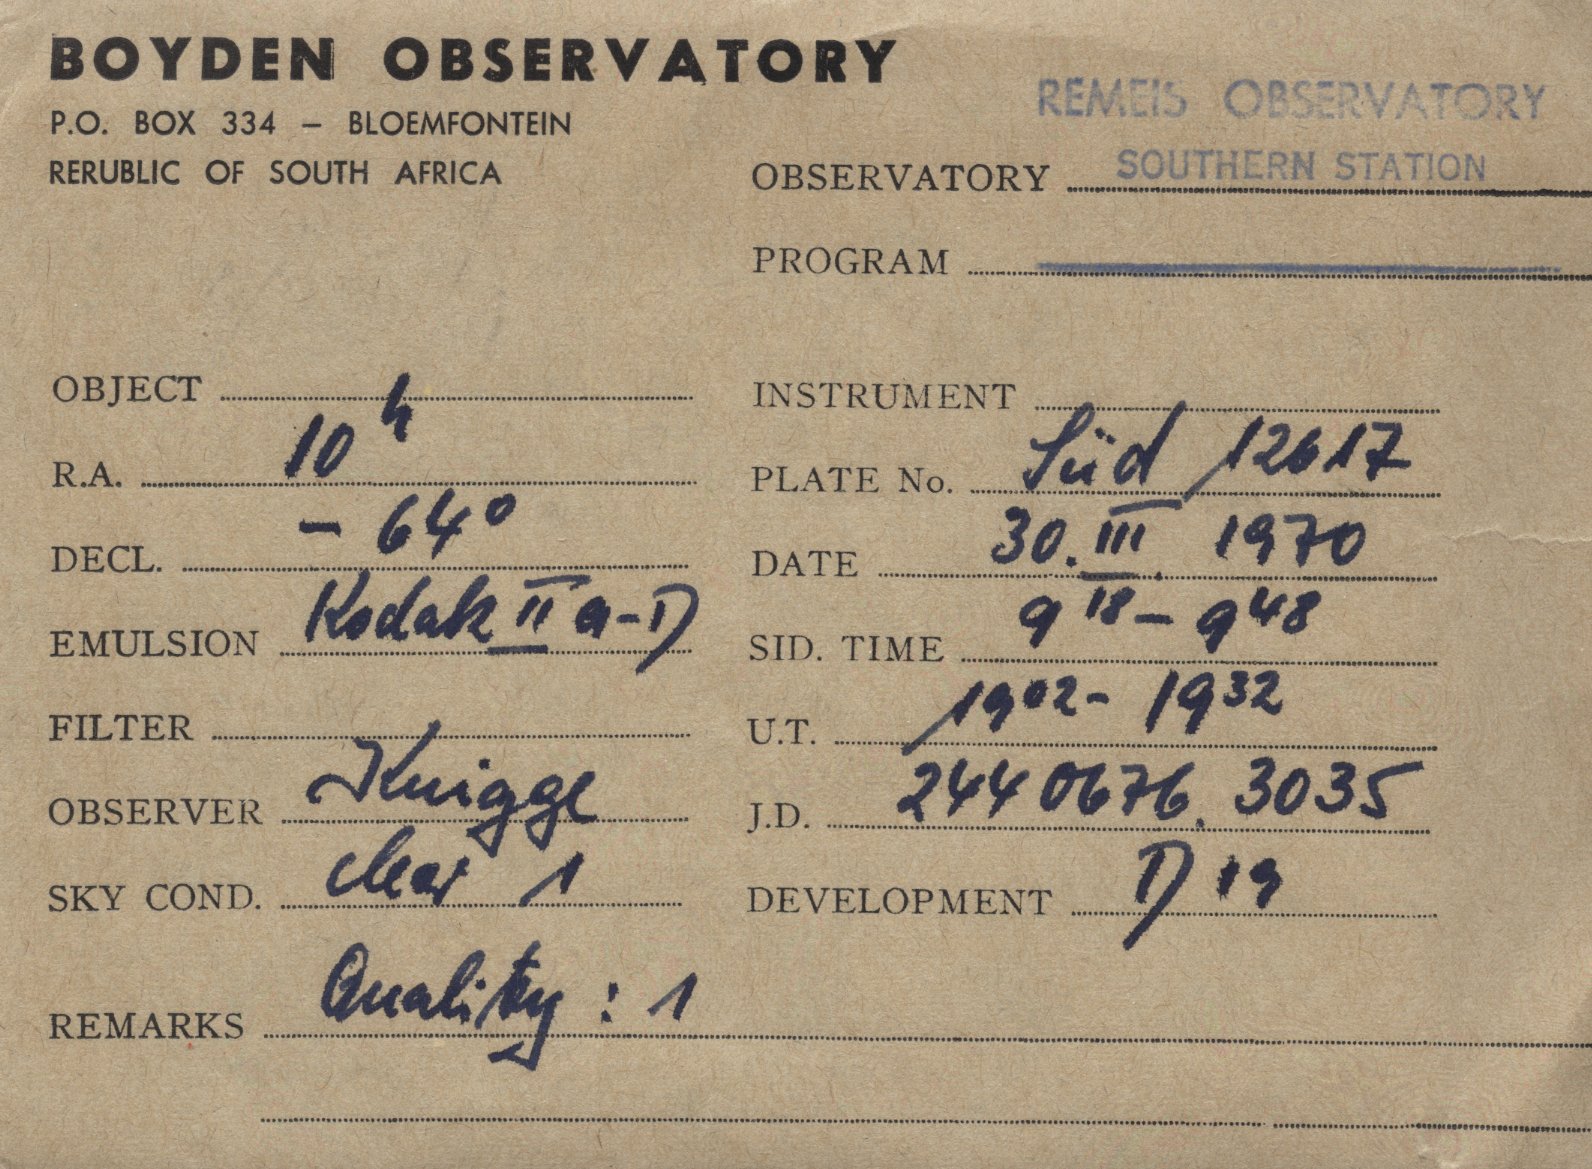 BOYDEN OBSERVATORY
P.O. BOX 334 – BLOEMFONTEIN
RERUBLIC OF SOUTH AFRICA
REMEIS OBSERVATORY
OBSERVATORY SOUTHERN STATION
PROGRAM
OBJECT
INSTRUMENT
R.A. 10 h
PLATE No. Süd 12617
DECL. – 64°
DATE 30. III. 1970
EMULSION Kodak II a-D
SID. TIME 9 18 – 9 48
FILTER
U.T. 19 02 - 19 32
OBSERVER Knigge
J.D. 2440676.3035
SKY COND. clear 1
DEVELOPMENT D 19
REMARKS Quality : 1